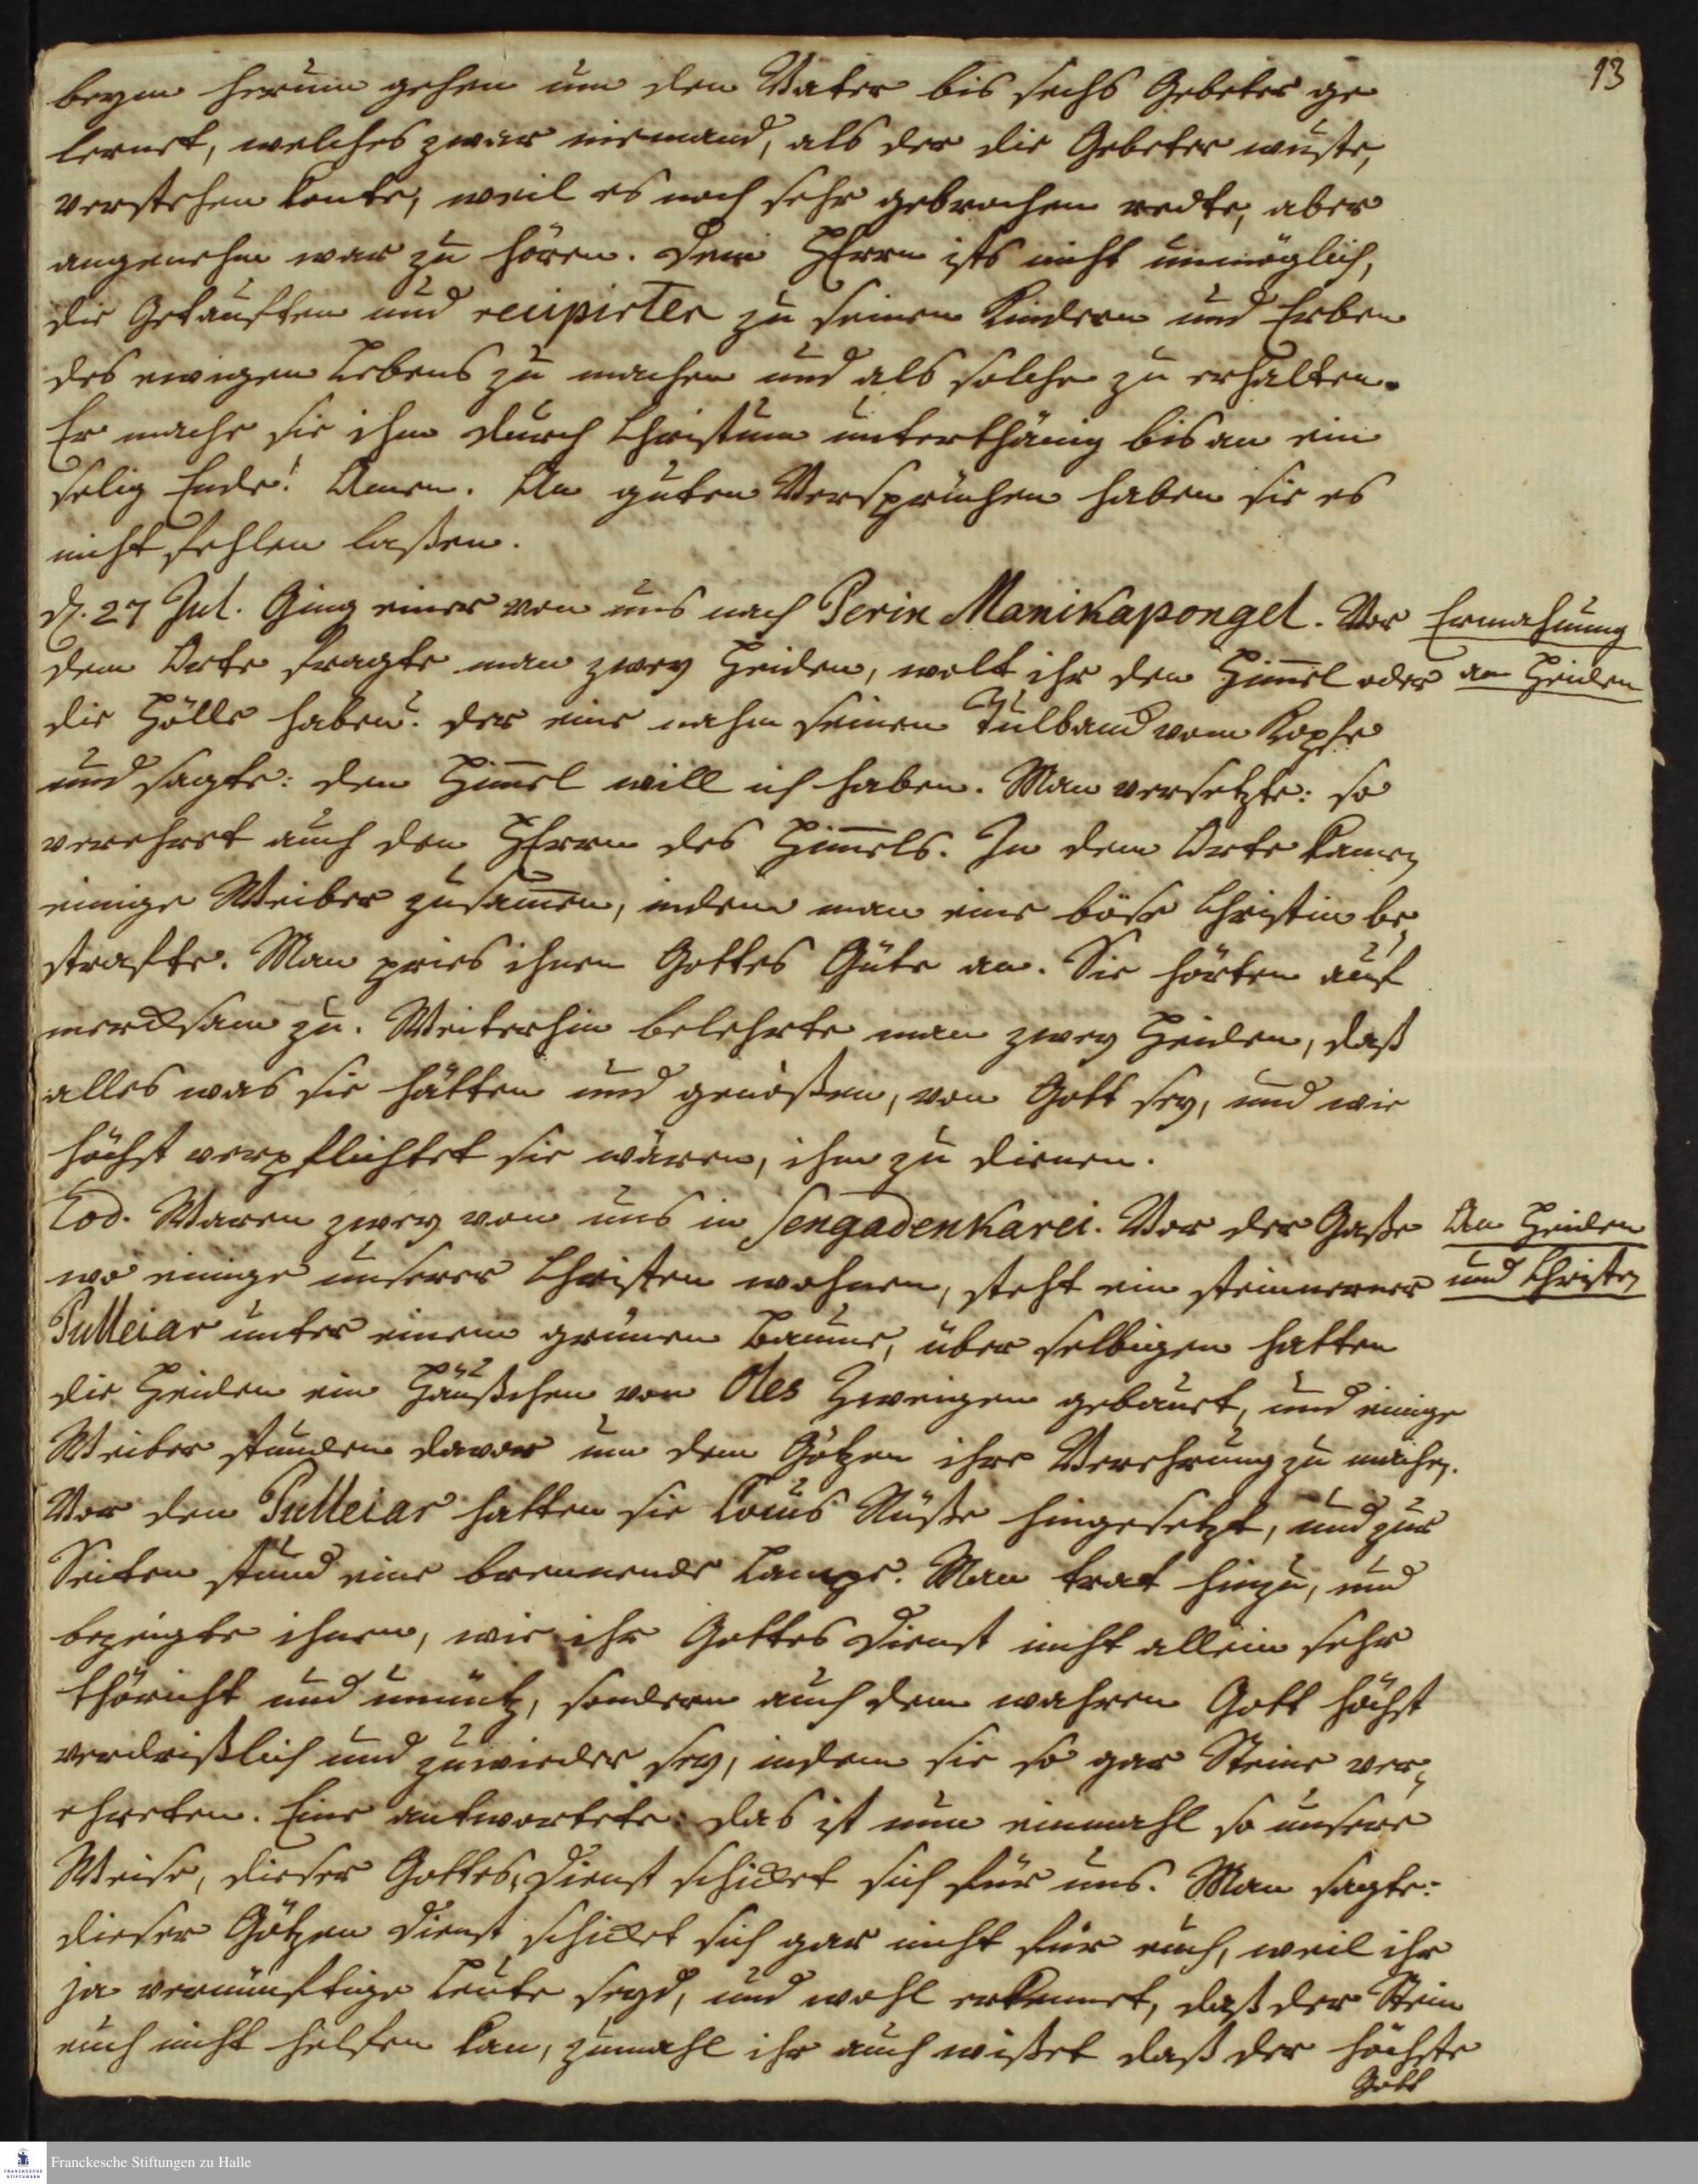 13
beym herum gehen um den Vater bis sechs Gebeter ge
lernet, welches zwar niemand, als der die Gebeter wuste,
verstehen konte, weil es noch sehr gebrochen redte, aber
angenehm war zu hören. Dem HErrn ists nicht unmöglich,
die Getauften und recipirten zu seinen Kindern und Erben
des ewigen Lebens zu machen und als solche zu erhalten.
Er mache sie ihm durch Christum unterthänig bis an ein
selig Ende! Amen. An guten Versprüchen haben sie es
nicht fehlen laßen.
d. 27 Jul. Ging einer von uns nach Perin Manikapongel. Vor
Ermahnung
dem Orte fragte man zwey Heiden, wolt ihr den Himel oder
an Heiden
die Hölle haben? der eine nahm seinen Tulband vom Kopfe
und sagte: den Himel will ich haben. Man versetzte: so
verehret auch den HErrn des Himels. In dem Orte kamen
einige Weiber zusamen, indem man eine böse Christin be
strafte. Man pries ihnen Gottes Güte an. Sie hörten auf
mercksam zu. Weiterhin belehrte man zwey Heiden, daß
alles was sie hätten und genößen, von Gott sey, und wie
höchst verpflichtet sie wären, ihm zu dienen.
Eod. Waren zwey von uns in Sengadenkarei. Vor der Gaße
An Heiden
wo einige unserer Christen wohnen, steht ein steinerner
und Christen
Pulleiar unter einem grünen Baume, über selbigen hatten
die Heiden ein Häußchen von Oles Zweigen gebauet, und einige
Weiber stunden davor um dem Götzen ihre Verehrung zu machen.
Vor den Pulleiar hatten sie Cocus Nüße hingesetzt, und zur
Seiten stund eine brennende Lampe. Man trat hinzu, und
bezeigte ihnen, wie ihr Gottes Dienst nicht allein sehr
thöricht und unnütz, sondern auch dem wahren Gott höchst
verdrißlich und zuwieder sey, indem sie so gar Steine ver-
ehreten. Eine antwortete: das ist nun einmahl so unsere
Weise, dieser Gottes-Dienst schicket sich für uns. Man sagte:
dieser Götzen Dienst schicket sich gar nicht für euch, weil ihr
ja vernünftige Leute seyd, und wohl erkennet, daß der Stein
euch nicht helfen kan, zumahl ihr auch wißet daß der höchste
Gott
Franckesche Stiftungen zu Halle